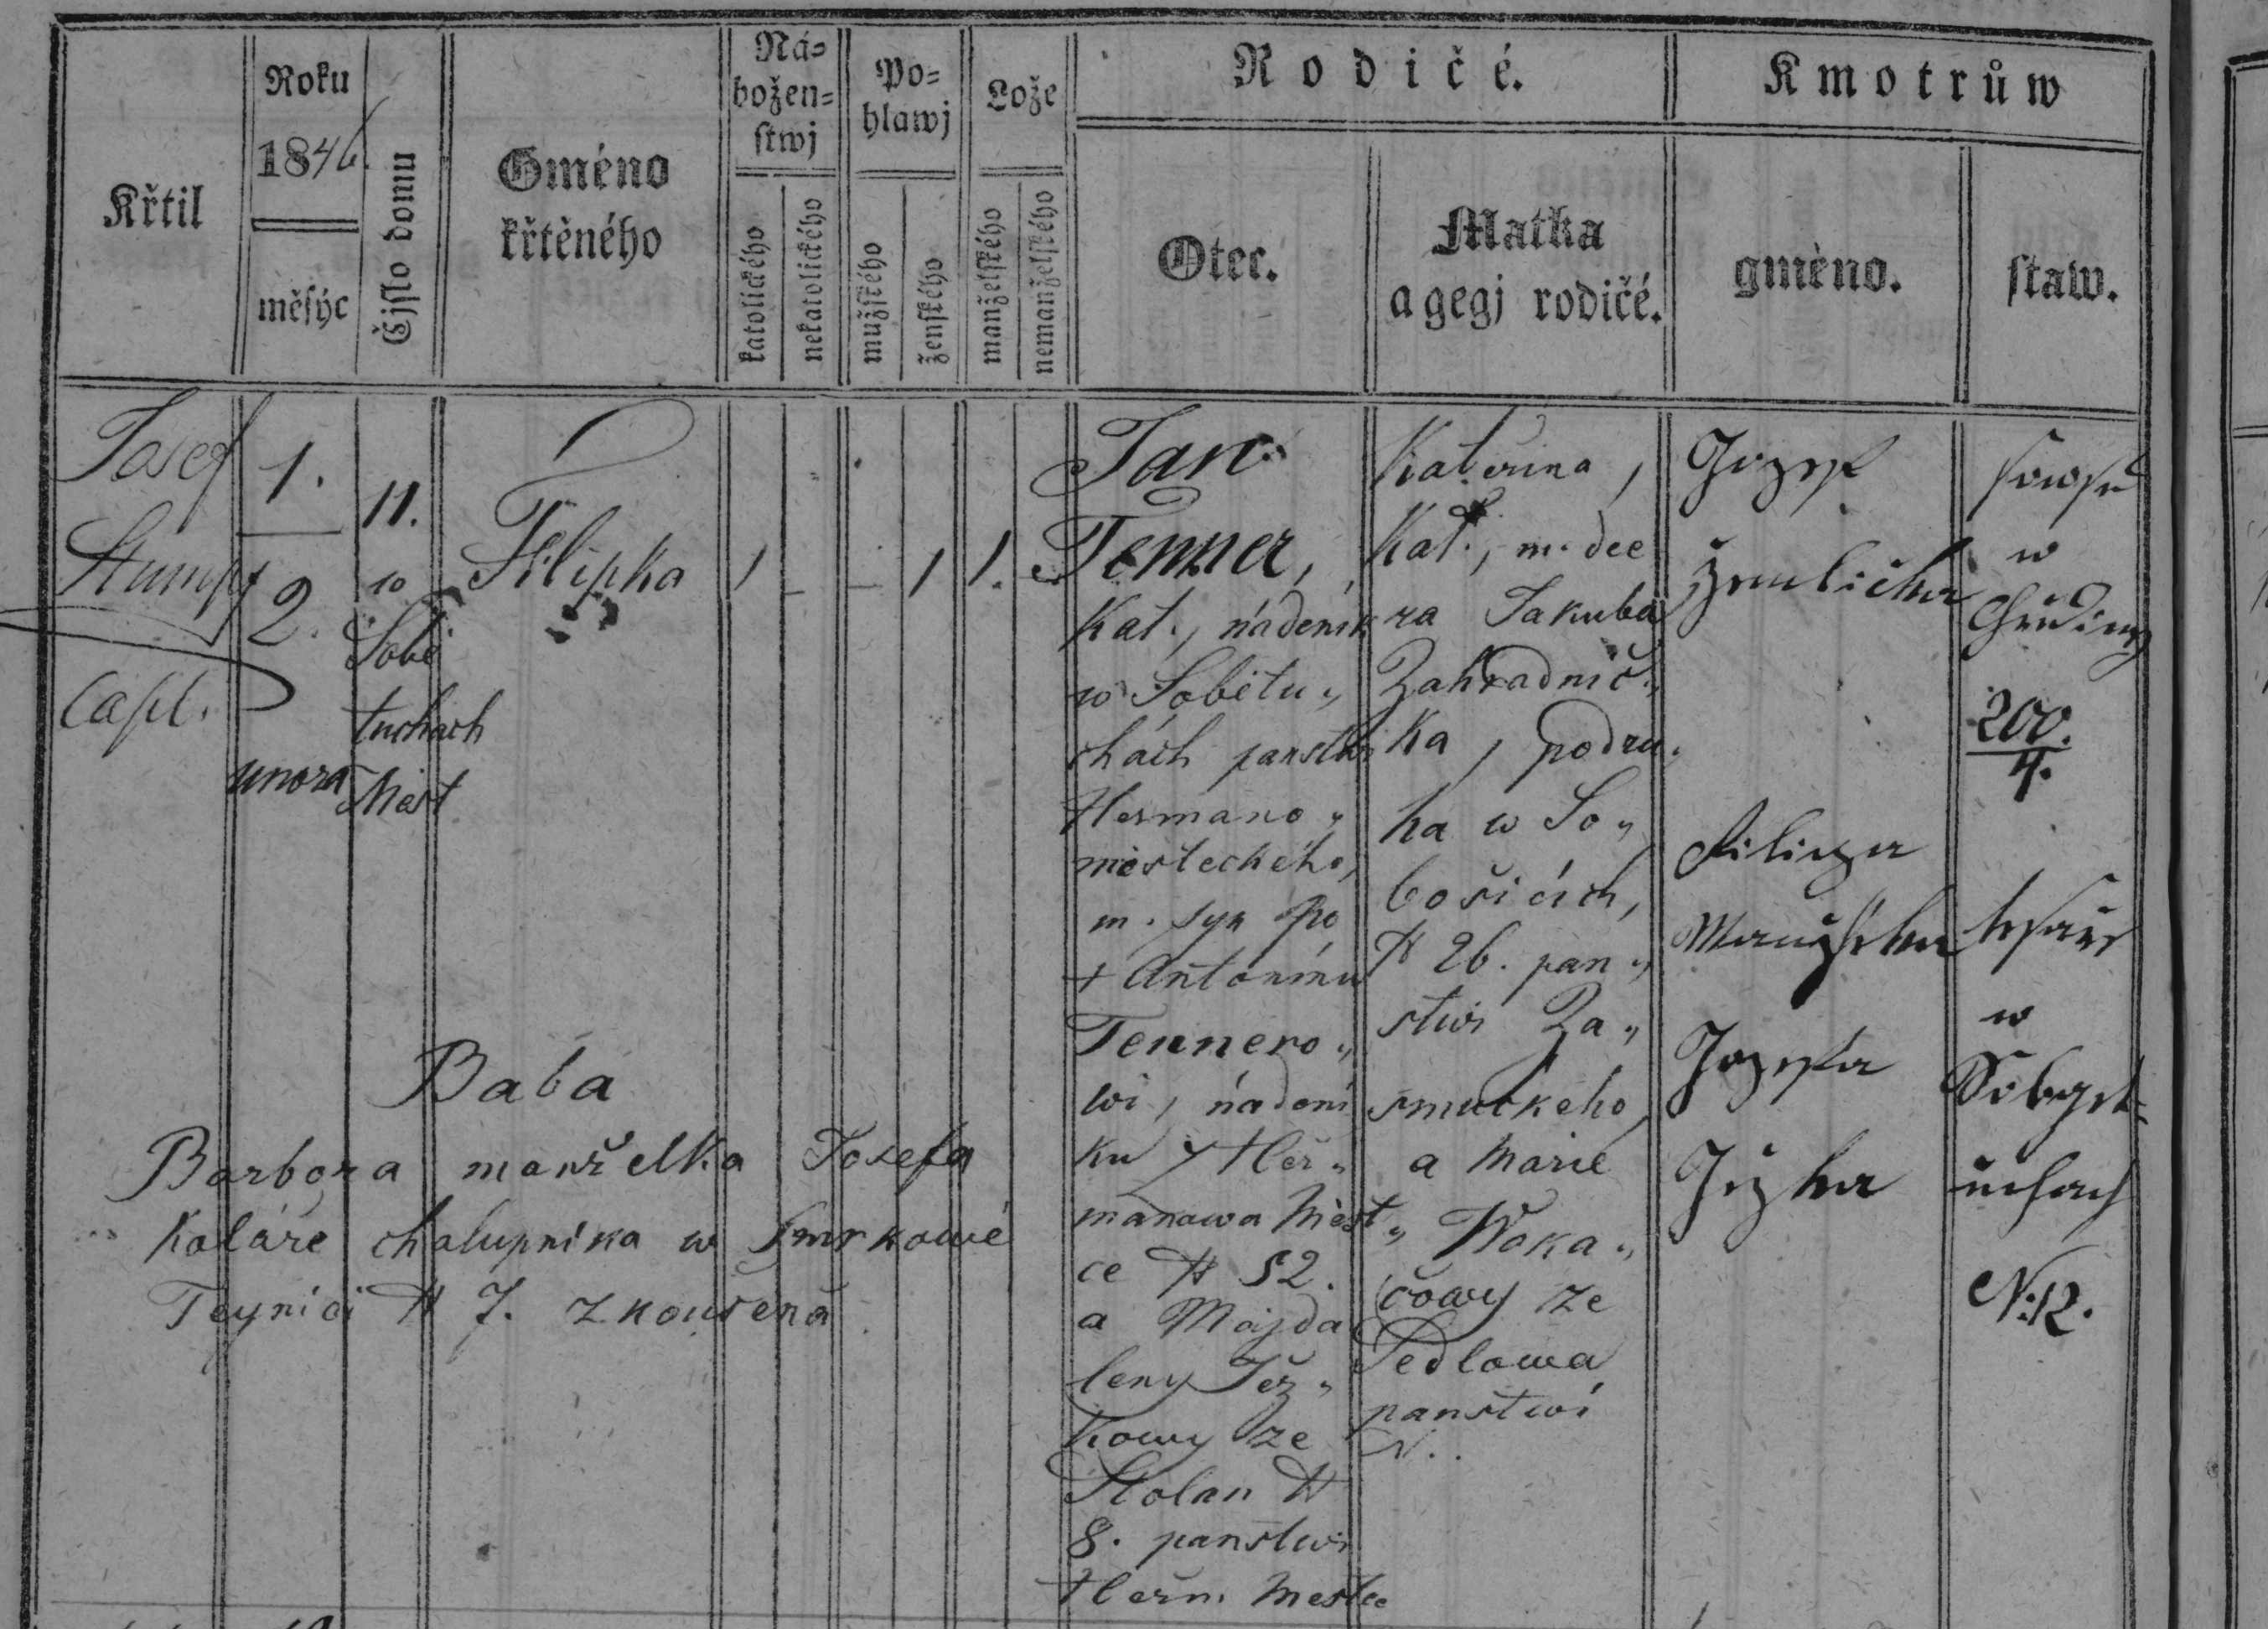 Křtil
Roku
1846.
měsýc
Čjslo domu
Gméno
křtěného
Ná=
božen=
stwj
katolického
nekatolického
Po=
hlawj
mužského
ženského
Lože
manželského
nemanželského
Rodičé.
Otec.
Matka
a gegj rodičé.
Kmotrůw
gméno.
staw.
Josef
Stumpf
Capl.
1.
2.
unora
11.
w
Sobě
tuchach
Měst
Filipka
1
1
1.
Jan
Tenner,
Kat., nádeník
w Sobětu„
chách panstwi
Hermano„
městeckého,
m. syn po
+ Antonínu
Tennero„
wi, nádení
ku z Heř„
manowa Měst„
ce N 52.
a Majda
leny Jež„
kowy ze
Stolan N
8. panstwi
Heřm. Mestec
Kateřina,
Kat., m. dce
ra Jakuba
Zahradnič„
ka, podru„
ha w So„
bošicích,
N 26. pan„
stwi Za„
smuckeho,
a Marie
Woka„
čowy ze
Sedlowa
panstwí
N..
Jozef
Žemlička
Filipa
Josefa
Ježka
w
Chrudimy
200.
4.
w
Sobiet=
uchach
N: 12.
Baba
Barbora manželka Josefa
Koláře chalupnika w Smrkowé
Teynici N 7. zkoušená